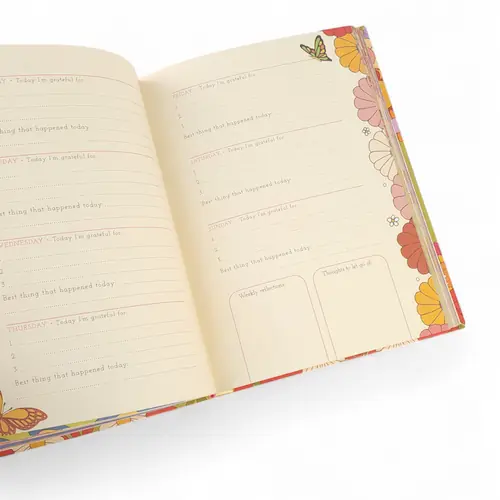 AY • Today I'm grateful for:
est thing that happened today:
TUESDAY • Today I'm grateful for:
Best thing that happened today:
WEDNESDAY • Today I'm grateful for:
2
3
Best thing that happened today:
THURSDAY • Today I'm grateful for:
1
2
3
Best thing that happened today:
FRIDAY • Today I'm grateful for:
1
2
3
Best thing that happened today:
SATURDAY • Today I'm grateful for:
1
2
3
Best thing that happened today:
SUNDAY • Today I'm grateful for:
1
2
3
Best thing that happened today:
Weekly reflections:
Thoughts to let go of: